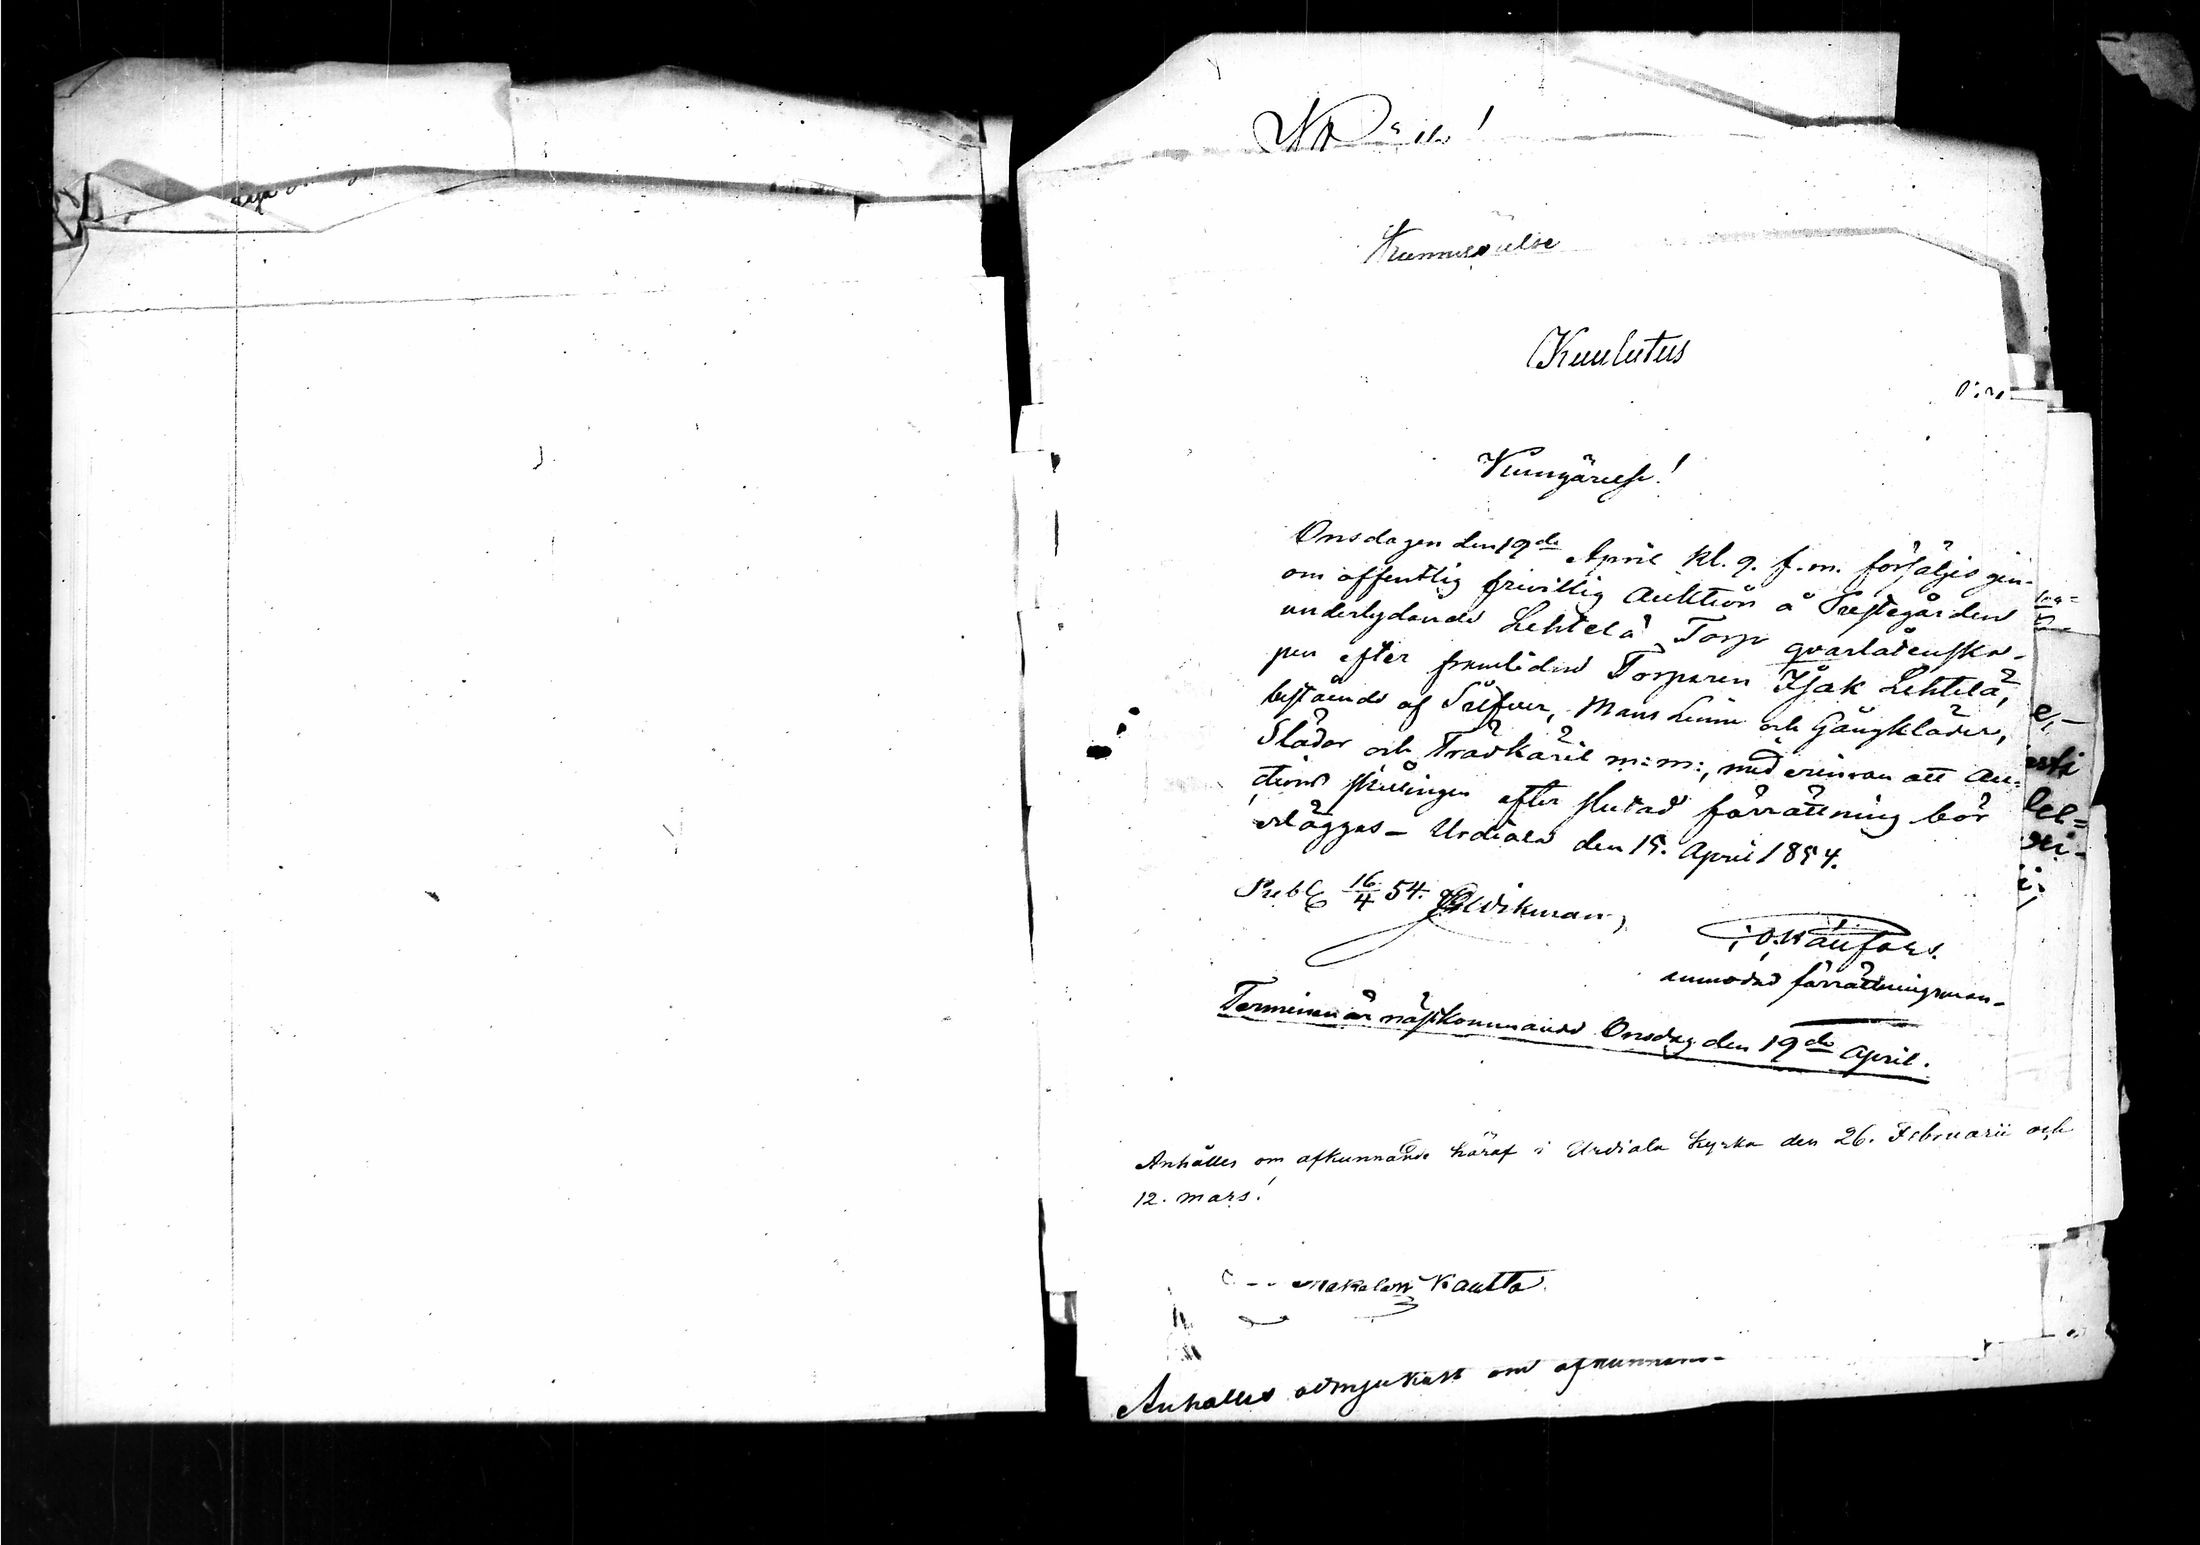 Kuulutus
Kungörelse!
Onsdagen den 19de April kl. 9. f.m. försäljes gen-
om offentlig frivillig Auktion å Prestegården
underlydande Lehtelä Torp qvarlåtenska-
pen efter framlidne Torparen Isak Lehtelä,
bestående af Silfver, Mans Linne och Gångkläder,
Slädor och Trädkäril m:m:, med erinran att Auc-
tions skillingen efter slutad förrättning bör
erläggas - Urdiala den 15. April 1854.
Publ 16/4 54. Wikman,
anmodad förrättningsman-
Terminen är nästkommande Onsdag den 19de April.
Anhålles om afkunnande häraf i Urdiala Kyrka den 26. Februarii och
12. Mars!
Kautta
Anhålles ödmjukast om afkunnan-